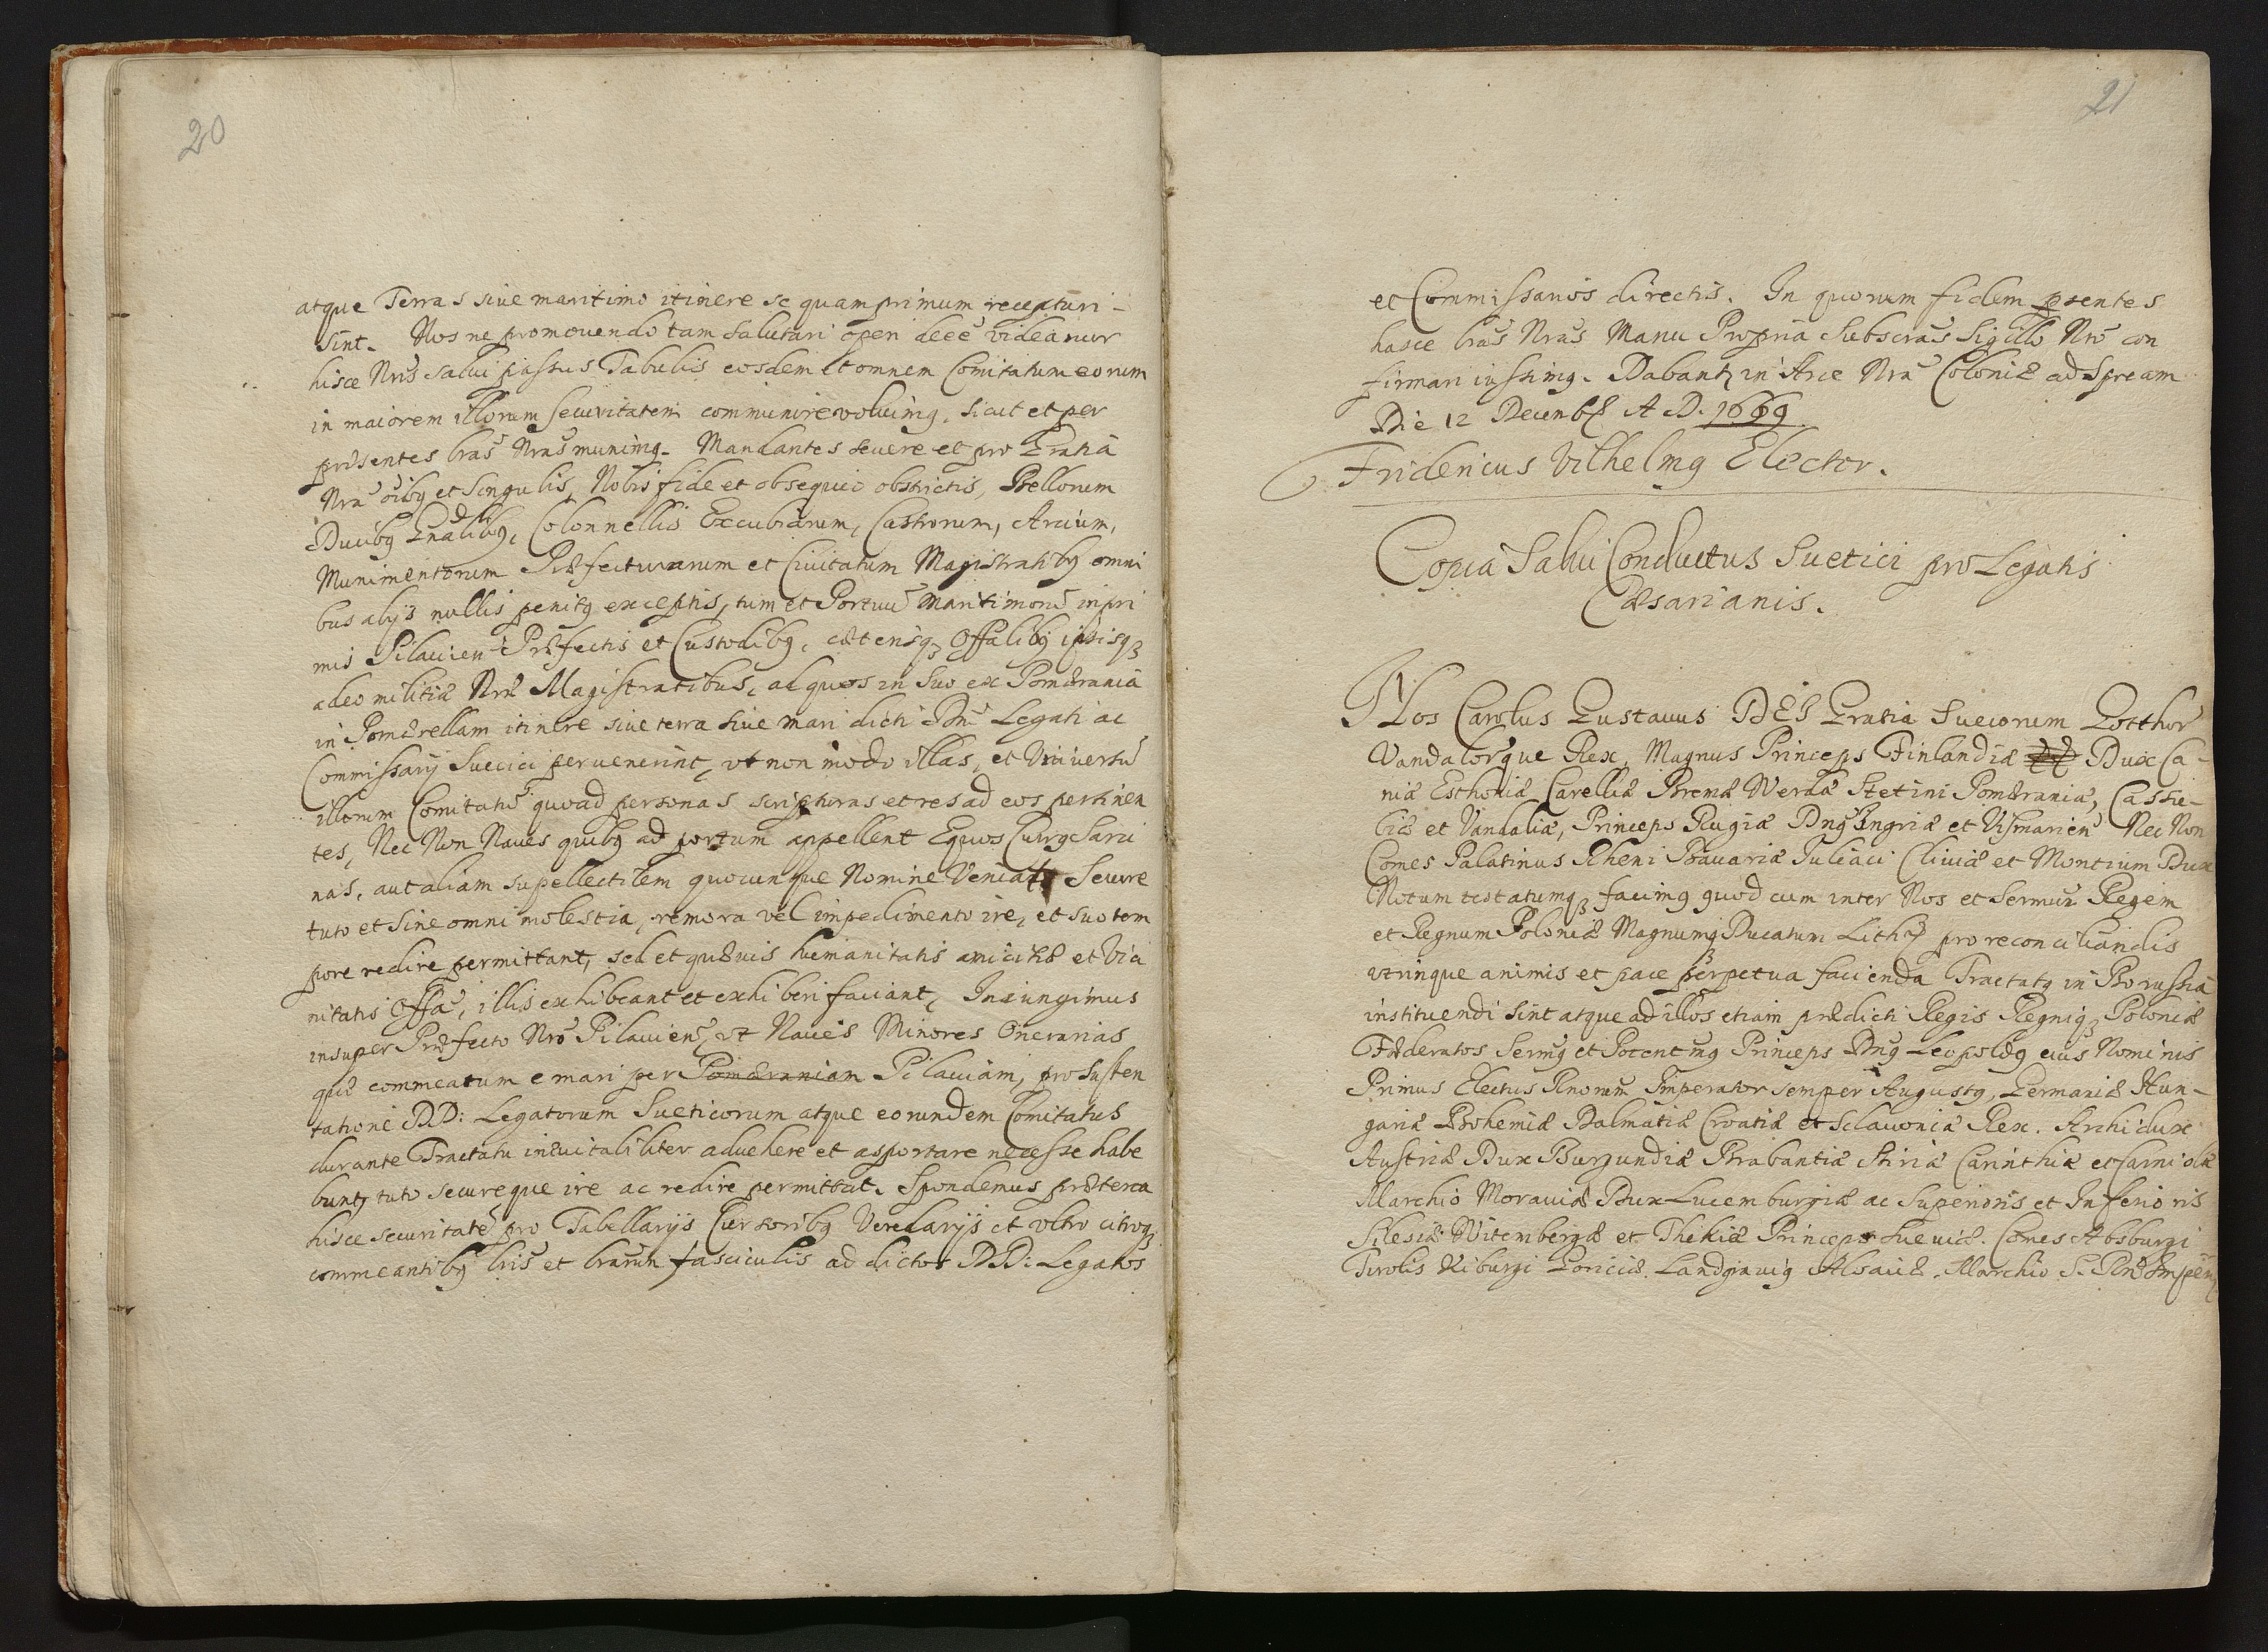 20
atque Terra siue maritimo itinere se quamprimum recepturi-
sint. Nos ne promouendo tam salutari operi deeē videamur
hisce Nris salui passus Tabulis eosdem et omnem Comitatum eorum
in maiorem illorum securitatem communire voluimꝰ, sicut et per
præsentes lras Nras munimꝰ. Mandantes seuere et pro Gratia
Nra oībꝰ et Singulis, Nobis fide et obsequio obstrictis, Bellorum
Ducibꝰ Gnalibꝰ, Colonnellis Excubiarum, Castrorum, Arcium,
Munimentorum Præfecturarum et Ciuitatum Magistratibꝰ omni
bus alijs nullis penitꝰ exceptis, tum et Portuū Maritimorū inpri
mis Pilauien Præfectis et Custodibꝰ, cæterisqꝫ Offalibꝰ ipsisqꝫ
adeo militiæ Nræ Magistratibus, ad quos in suo ex Pomerania
in Pomerellam itinere siue terra siue mari dicti Dni Legati ac
Commissarij Suecici peruenerint, vt non modo illas, et Vniversū
illorum Comitatū quoad personas scripturas et res ad eos pertinen
tes, Nec Non Naues quibꝰ ad portum appellent Equos Currꝰ Sarci
nas, aut aliam supellectilem quocunque Nomine Veniat Secure
tuto et sine omni molestia, remora vel impedimento ire, et suo tem
pore redire permittant, sed et quæuis humanitatis amicitiæ et Vici
nitatis Offa, illis exhibeant et exhiberi faciant, Iniungimus
insuper Præfecto Nro Pilauien, vt Naues Minores Onerarias
quæ commeatum e mari per Pomeraniam Pilauiam, pro susten
tatione DD: Legatorum Sueticorum atque eorundem Comitatus
durante Tractatu ineuitabiliter aduehere et asportare necesse habe
bunt, tuto secureque ire ac redire permittat. Spondemus præterea
hisce securitatē pro Tabellarijs Cursoribꝰ Veredarijs et vltro citroqꝫ
commeantibꝰ lris et lrarum fasciculis ad dictos DD: Legatos
21
et Commissarios directis. In quorum fidem pñtes
hasce lras Nras Manu Propria Subscras Sigillo Nro con
firmari iussimꝰ. Dabantꝫ in Arce Nra Coloniæ ad Spream
Die 12 Decembꝫ A D. 1669
Fridericus Vilhelmꝰ Elector.
Copia Salui Conductus Suetici pro Legatis
Cæsarianis.
Nos Carolus Gustauus DEI Gratia Suecorum Gotthor
Vandalorque Rex, Magnus Princeps Finlandiæ Dux Ca-
niæ Esthoniæ Careliæ Bremæ Werdæ Stetini Pomeraniæ, Cassu-
biæ et Vandaliæ, Princeps Rugiæ Dnꝰ Ingriæ et Vismarien Nec Non
Comes Palatinus Rheni Bauariæ Juliaci Cliuiæ et Montium Dux
Notum testatumqꝫ facimꝰ quod cum inter Nos et Sermum Regem
et Regnum Poloniæ Magnumqꝫ Ducatum Lithꝫ pro reconciliandis
vtrinque animis et pace perpetua facienda Tractatꝰ in Borussia
instituendi sint atque ad illos etiam prædicti Regis Regniqꝫ Poloniæ
Fæderatos Sermꝰ et Potentmꝰ Princeps Dnꝰ Leopoldꝰ eius Nominis
Primus Electus Rnorum Imperator semper Augustꝰ, Germaniæ Hun-
gariæ Bohemiæ Dalmatiæ Croatiæ et Sclauoniæ Rex. Archidux
Austriæ Dux Burgundiæ Brabantiæ Stiriæ Carinthiæ et Carniolæ
Marchio Morauiæ Dux Lucemburgiæ ac Superioris et Inferioris
Silesiæ Witembergæ et Thekiæ Princeps Sueuiæ. Comes Absburgi
Tirolis Kiburgi Goriciæ. Landgrauiꝰ Alsatiæ. Marchio S. Rni Imperij